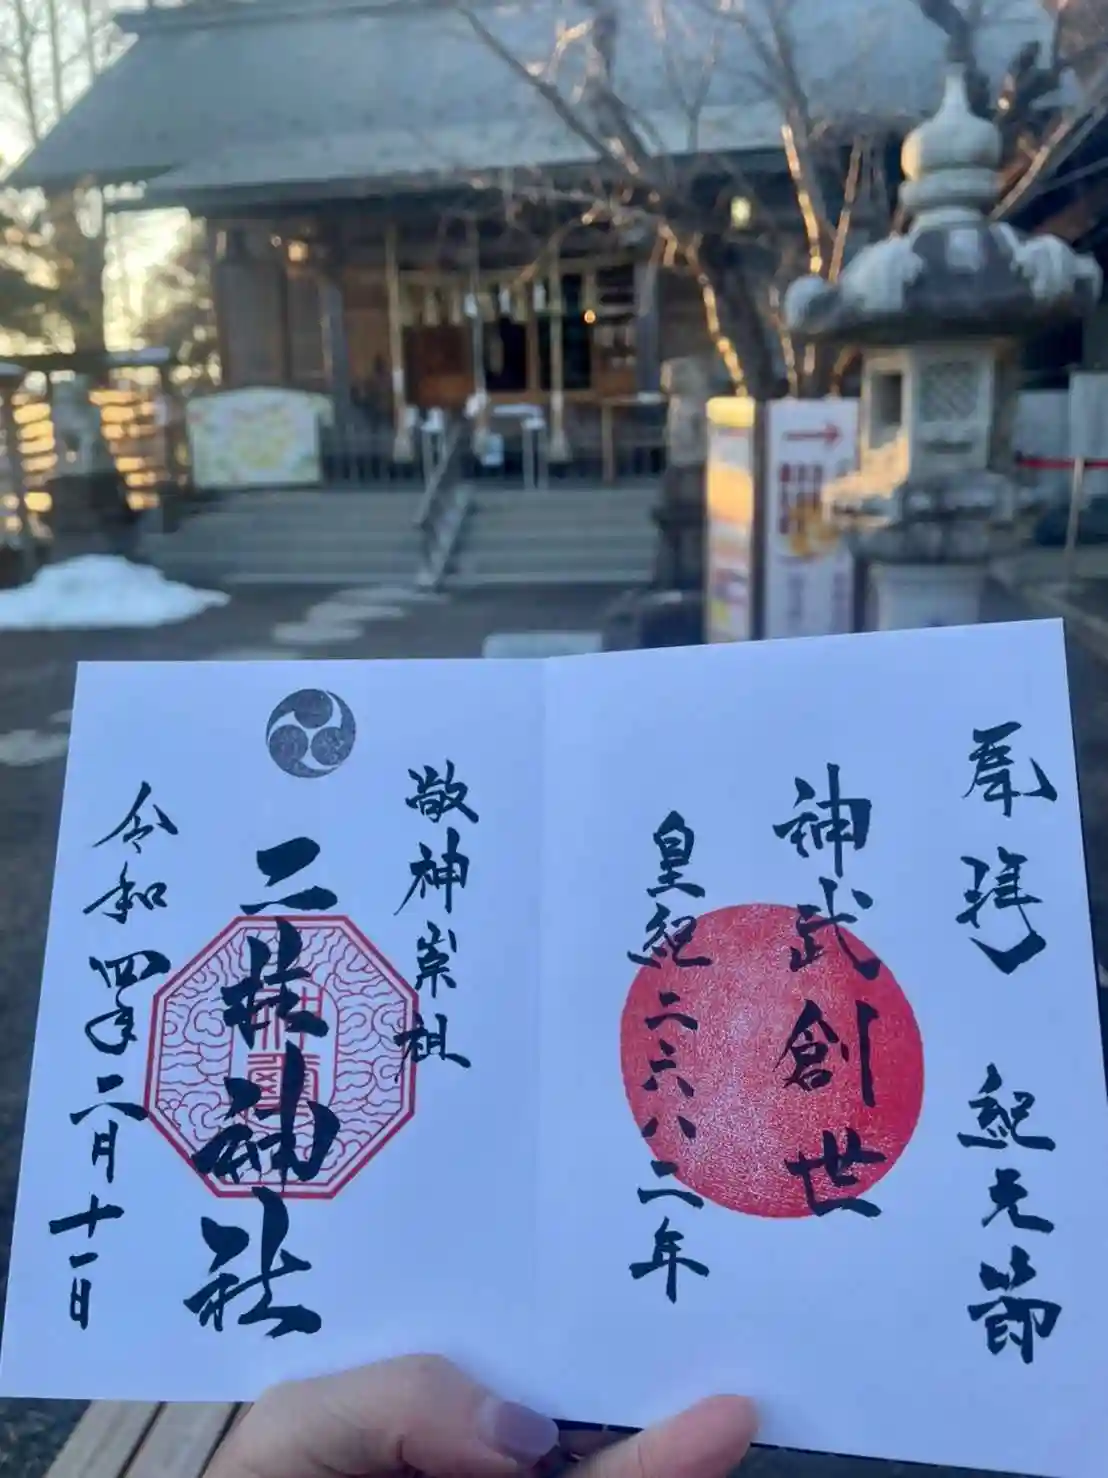 奉拝 紀元節
神武創世
皇紀二六八二年
敬神崇祖
二荘神社
令和四年二月十一日